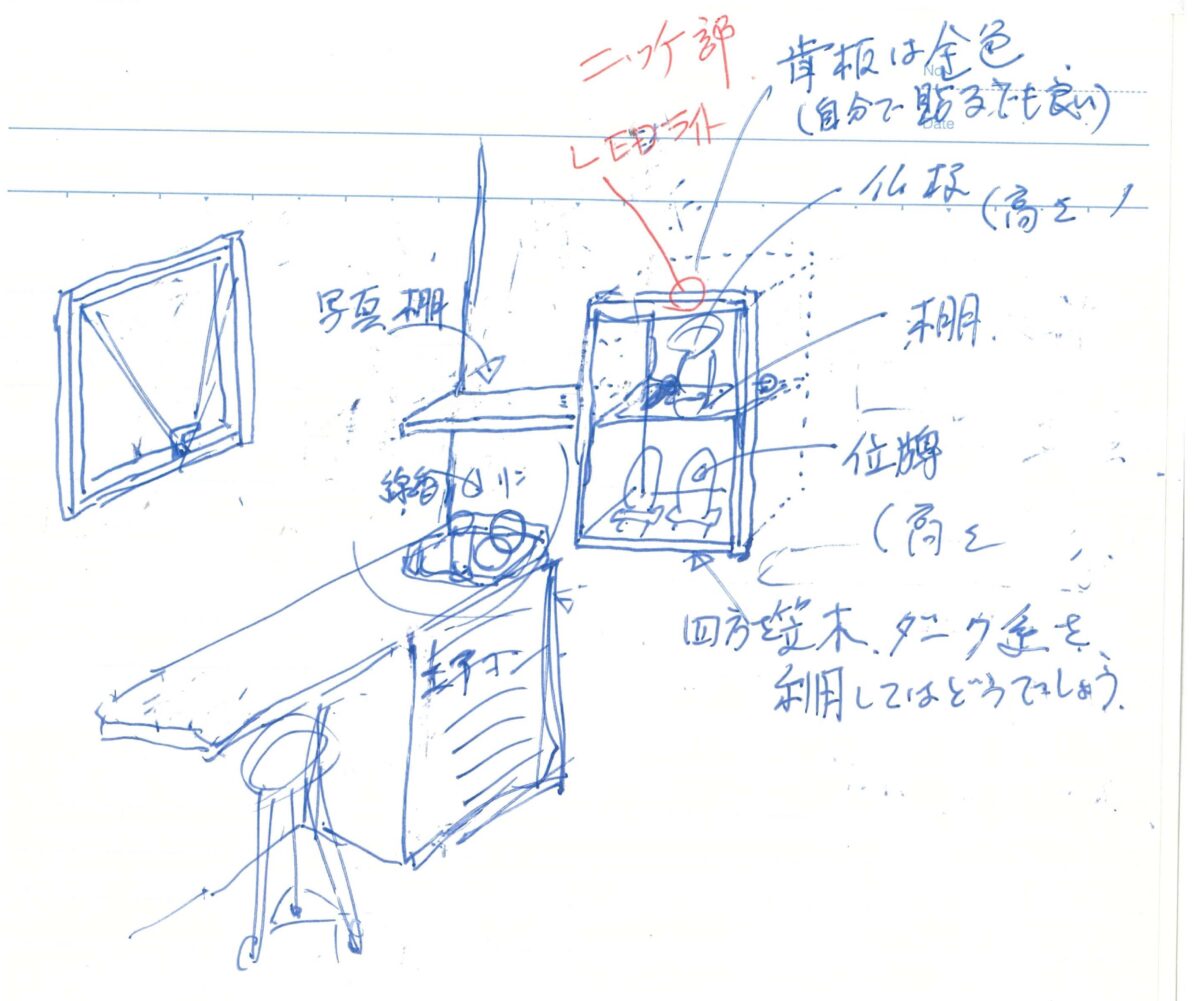 ニッケ部
LEDライト
背板は金色
(自分で貼るでも良い)
No.
Date
仏様(高さ
写真棚
棚
位牌
(高さ
線香
リン
四方を笠木、ダーク系を、
利用してはどうでしょう。